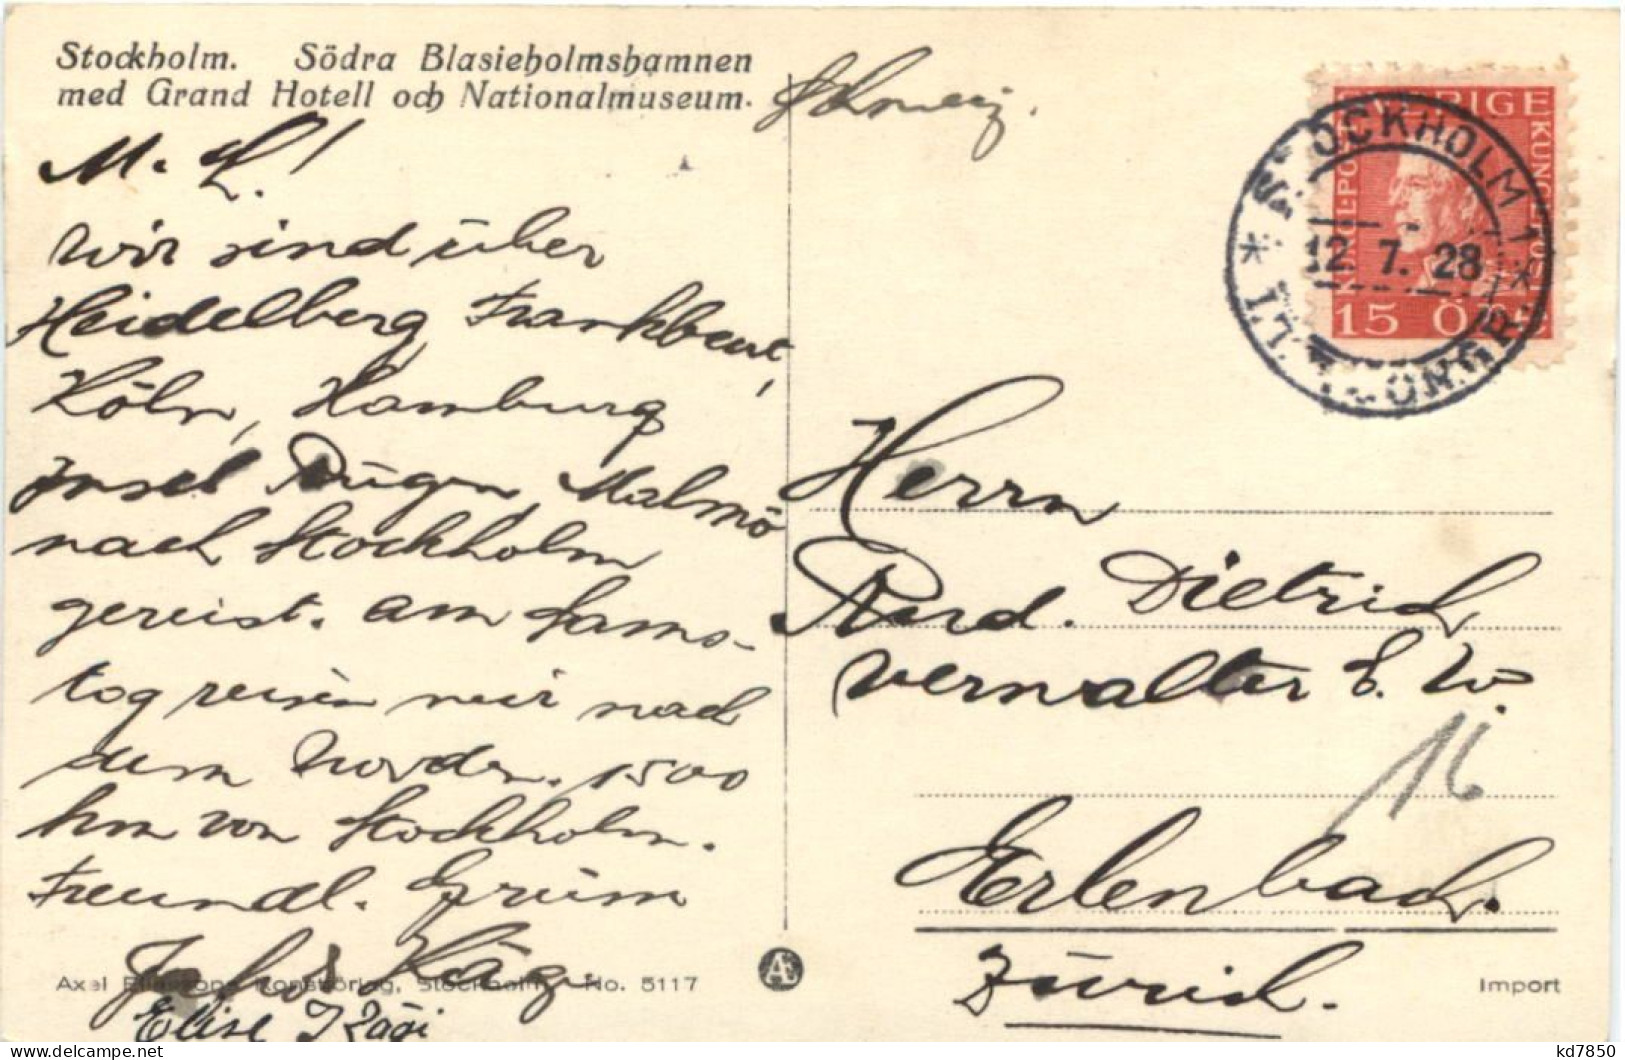 Stockholm. Södra Blasieholmshamnen
med Grand Hotell och Nationalmuseum.
Schweiz.
M. L!
wir sind über
Heidelberg, Frankfurt,
Köln, Hamburg
Insel Rügen, Malmö
nach Stockholm
gereist. am Sams-
tag reisen wir nach
dem Norden. 1500
km von Stockholm.
Freundl. Grüsse
Jak. & Kägi
Elise Kägi
Axel Eliassons Konstförlag, Stockholm. No. 5117
SVERIGE
KUNGL. POST
15 ÖRE
STOCKHOLM 1
12. 7. 28
LT. LÖNGR.
Herrn
Dietrich
Verwalter E. W.
16
Erlenbach.
Zürich.
Æ
Import
kd7850